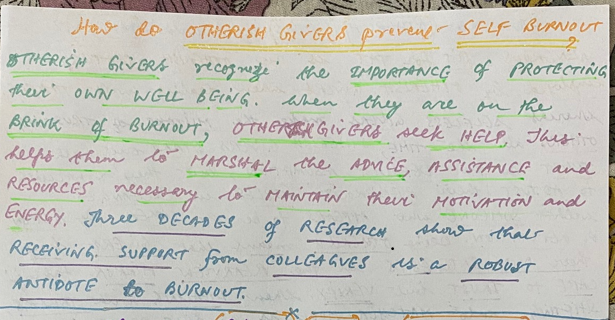 How do OTHERISH GIVERS prevent SELF BURNOUT
?
OTHERISH GIVERS recognize the IMPORTANCE of PROTECTING
their OWN WELL BEING. When they are on the
BRINK of BURNOUT, OTHERISH GIVERS seek HELP, This
helps them to MARSHAL the ADVICE, ASSISTANCE and
RESOURCES necessary to MAINTAIN their MOTIVATION and
ENERGY. Three DECADES of RESEARCH show that
RECEIVING SUPPORT from COLLEAGUES is a ROBUST
ANTIDOTE to BURNOUT.